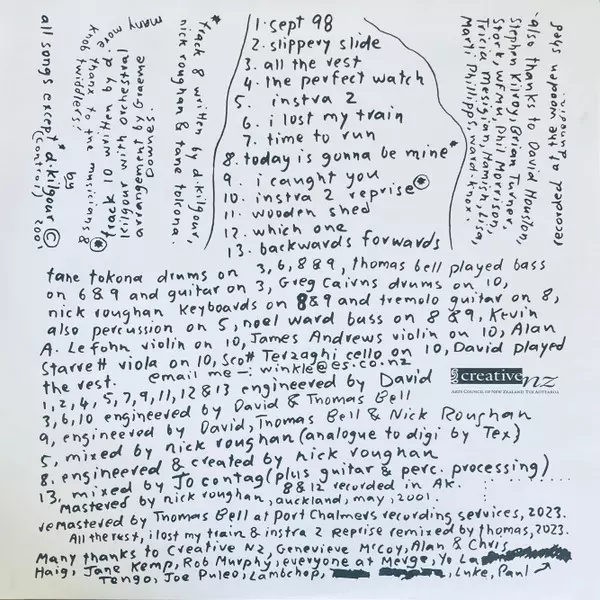 1. sept 98
2. slippery slide
3. all the rest
4. the perfect watch
5. instra 2
6. i lost my train
7. time to run
8. today is gunna be mine*
9. i caught you
10. instra 2 reprise*
11. wooden shed
12. which one
13. backwards forwards
all songs except * d.kilgour ©
by (control) 2001
many more thanx to the musicians &
knob twiddlers!
* track 10 written by d.
kilgour with orchestral
arrangement by Graeme
Downes.
*track 8 written by d.kilgour,
nick roughan & tane tokona.
also thanks to David Houston,
Stephen Kilroy, Brian Turner,
Stork, WFMU, Phil Morrison,
Tricia mesigian, Hamish, Lisa,
Marti Phillipps, ward-knox.
recorded at the wooden shed
Dunedin.
tane tokona drums on 3,6,8&9, thomas bell played bass
on 6&9 and guitar on 3, Greg Cairns drums on 10,
nick roughan keyboards on 8&9 and tremolo guitar on 8,
also percussion on 5, noel ward bass on 8&9, Kevin
A. Lefohn violin on 10, James Andrews violin on 10, Alan
Starrett viola on 10, Scott Terzaghi cello on 10, David played
the rest. email me -: winkle@es.co.nz
creative nz
ARTS COUNCIL OF NEW ZEALAND TOI AOTEAROA
1,2,4,5,7,9,11,12&13 engineered by David
3,6,10 engineered by David & Thomas Bell
9, engineered by David, Thomas Bell & Nick Roughan
5, mixed by nick roughan (analogue to digi by Tex)
8. engineered & created by nick roughan
13. mixed by Jo contag (plus guitar & perc. processing)
8&12 recorded in AK.
Mastered by nick roughan, auckland, may, 2001.
reMastered by Thomas Bell at Port Chalmers recording services, 2023.
All the rest, i lost my train & instra 2 Reprise remixed by thomas, 2023.
Many thanks to Creative NZ, Genevieve McCoy, Alan & Chris
Haig, Jane Kemp, Rob Murphy, everyone at Merge, Yo La
Tengo, Joe Puleo, Lambchop, Luke, Paul